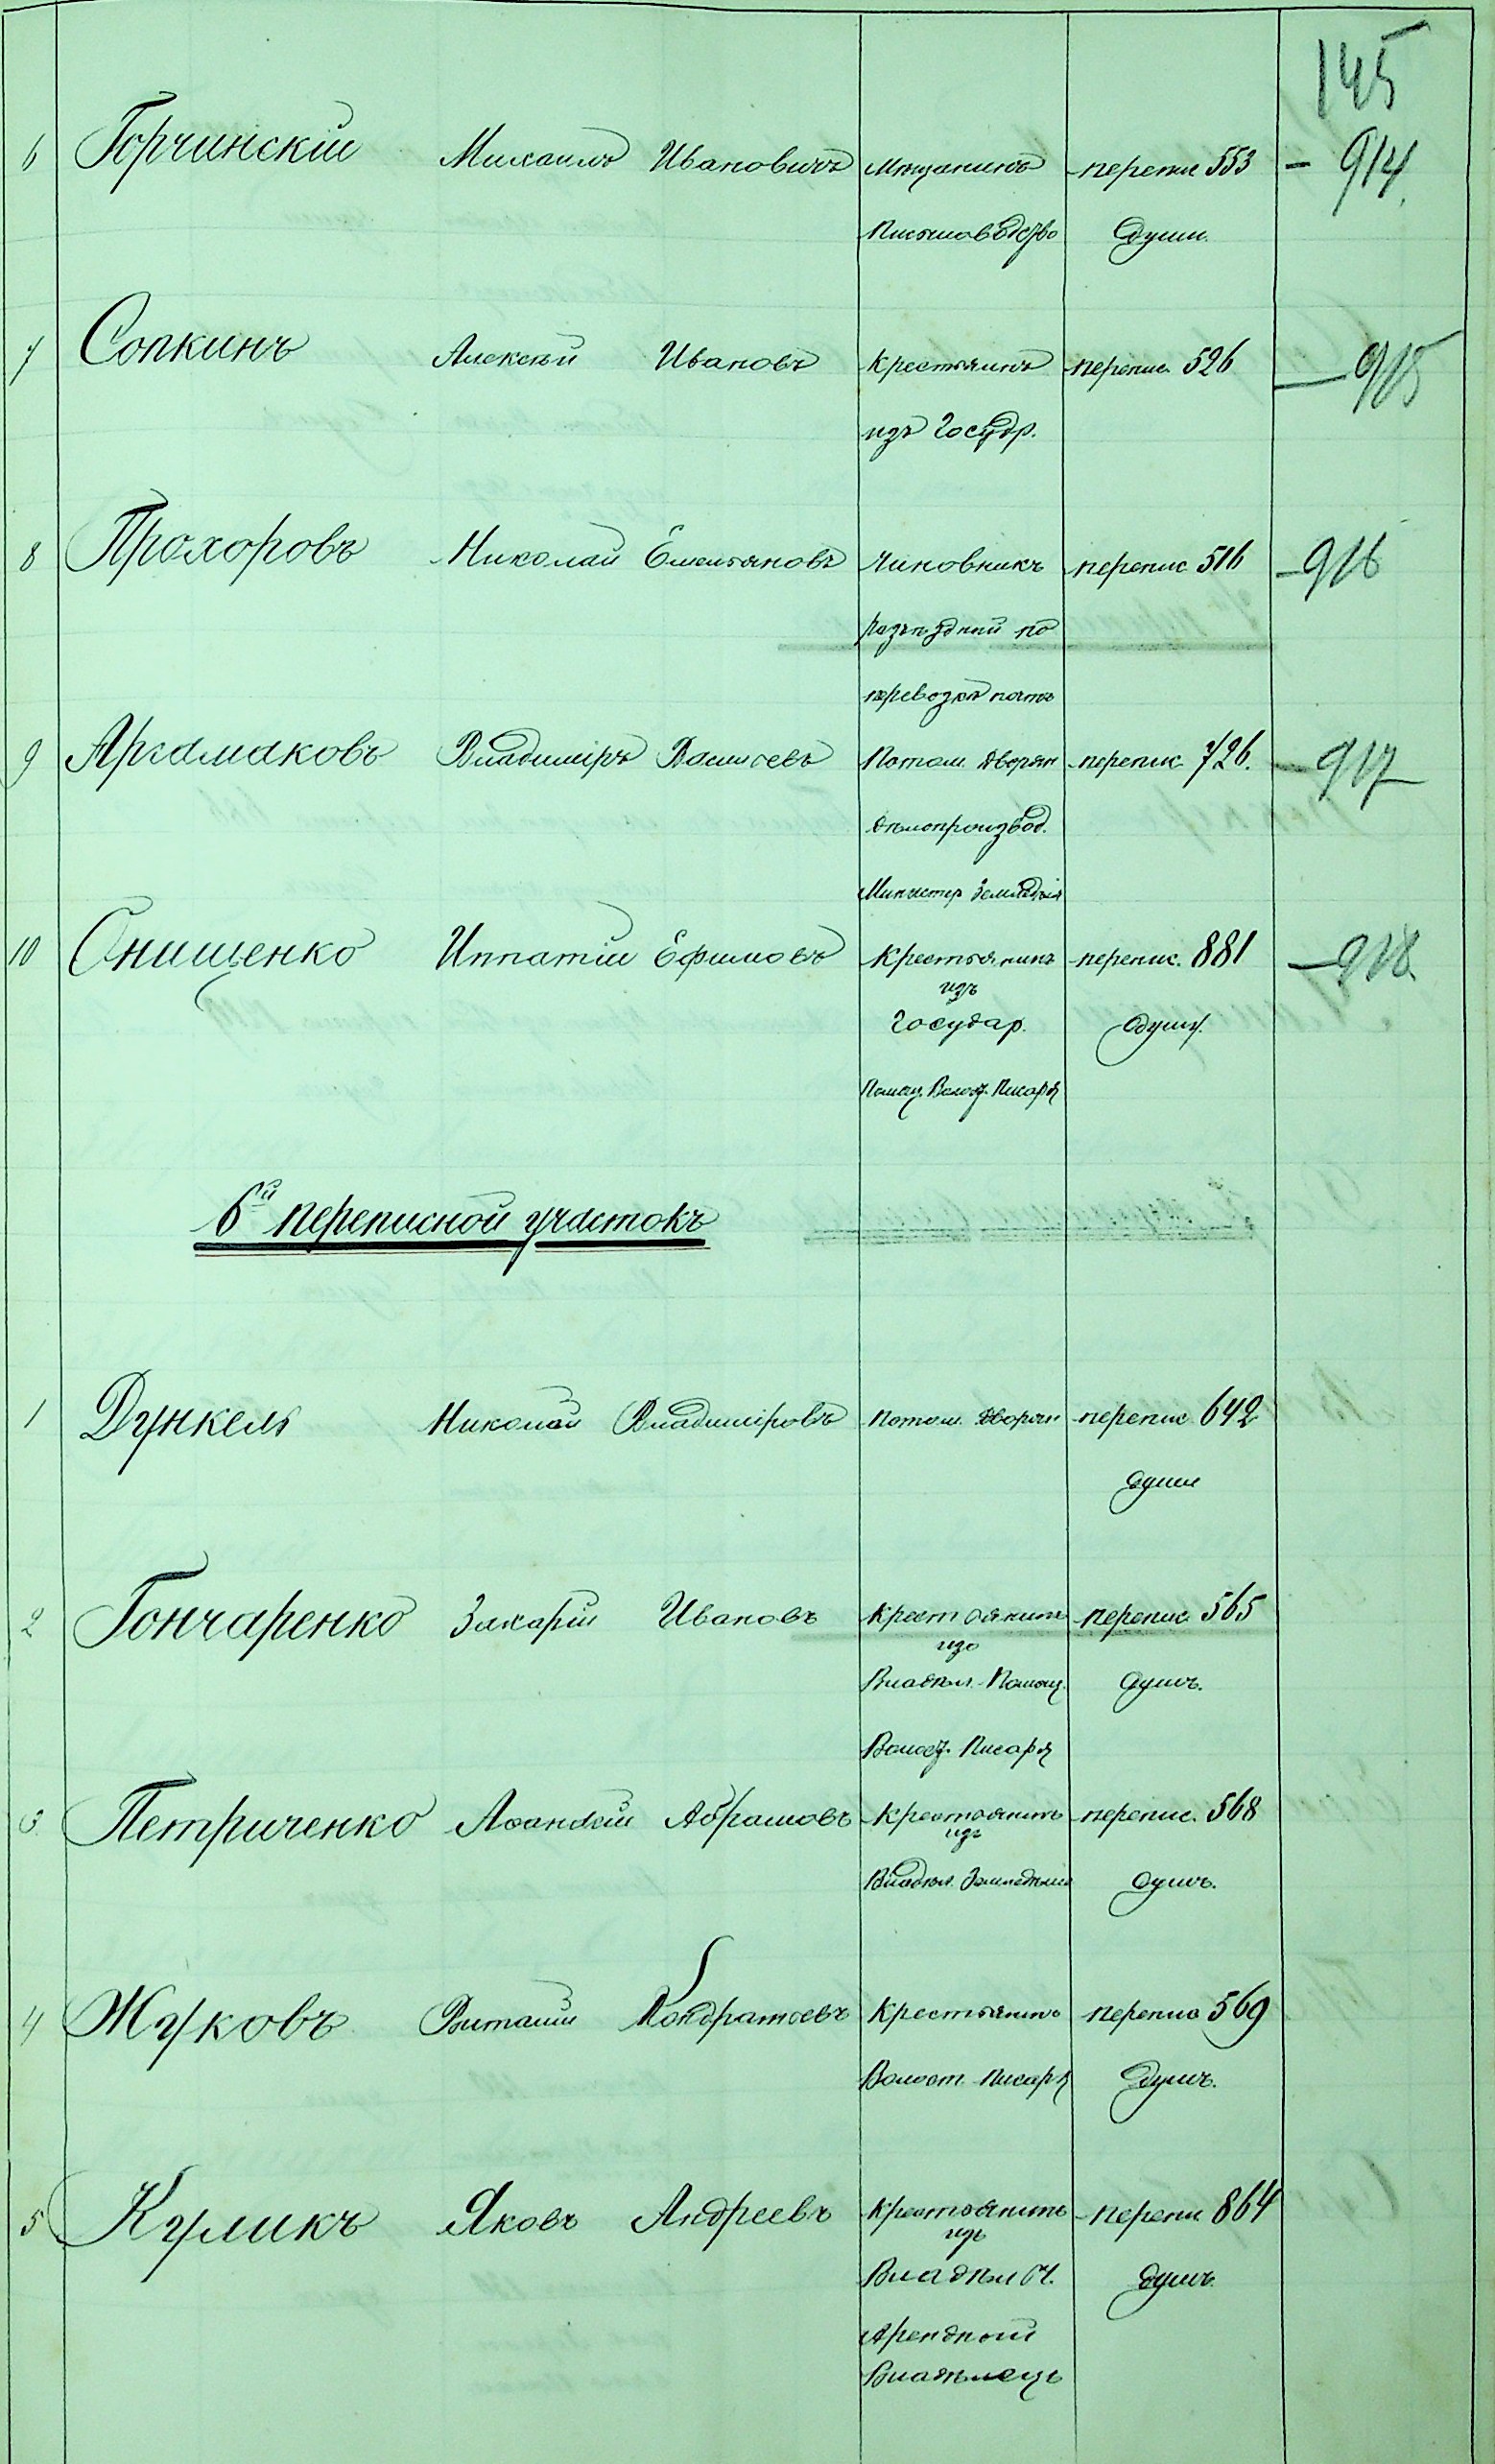 145
6 Горчинскій Михаилъ Ивановичъ Мѣщанинъ перепи 553 – 914.
Письмоводство души.
7 Сопкинъ Алексѣй Ивановъ Крестьянинъ перепис 526 — 915
изъ Госудр.
8 Прохоровъ Николай Емельяновъ Чиновникъ перепис 516 – 916
разъѣздной по
перевозкѣ почтъ
9 Аргамаковъ Владиміръ Василіевъ Потом. дворян перепис 726. – 917
дѣлопроизвод.
Министер Земледѣлія
10 Онищенко Ипатій Ефимовъ Крестьянинъ перепис. 881 – 918.
изъ
Государ. душъ.
Помощ. Волост. Писаря
6й переписной участокъ
1 Дункель Николай Владиміровъ Потом. дворян перепис 642
души
2 Гончаренко Захарій Ивановъ Крестьянинъ перепис 565
изъ
Владѣл. Помощ. душъ.
Волост. Писаря
3 Петриченко Абрамовъ Крестьянинъ перепис. 568
изъ
Владѣл. Земледѣліе душъ.
4 Жуковъ Виталій Кондратьевъ Крестьянинъ перепис 569
Волост. Писаря душъ.
5 Куликъ Яковъ Андреевъ Крестьянинъ перепи 864
изъ
Владѣльч. душъ.
Арендной
Владѣлецъ